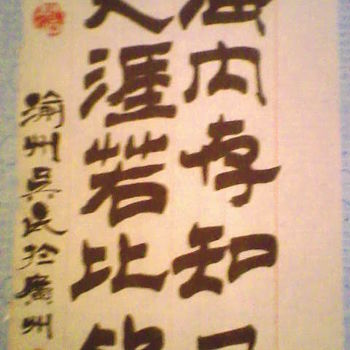 海内存知己
天涯若比邻
渝州吴民於廣州